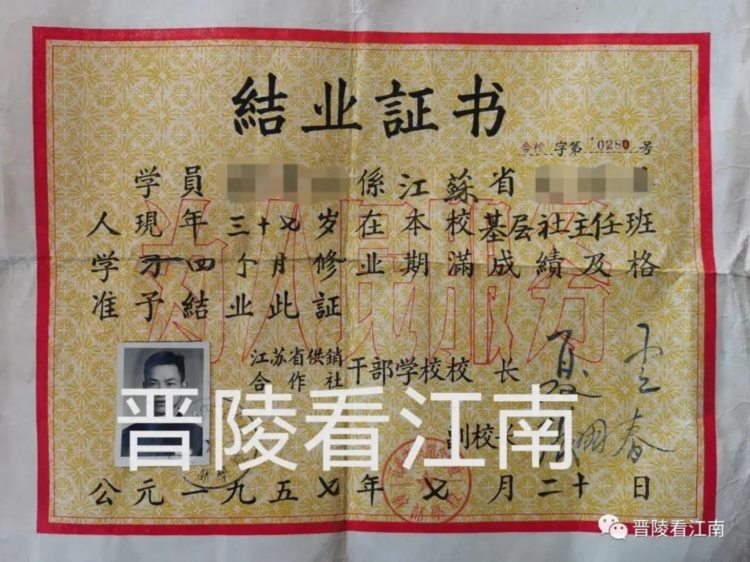 結业証书
合校字第10280号
学員 係江蘇省
人現年三十七岁在本校基层社主任班
学习四个月修业期滿成績及格
准予結业此証
江苏省供銷
合作社
干部学校校长
副校长
春
公元一九五七年七月二十日
为人民服务
晋陵看江南
晋陵看江南